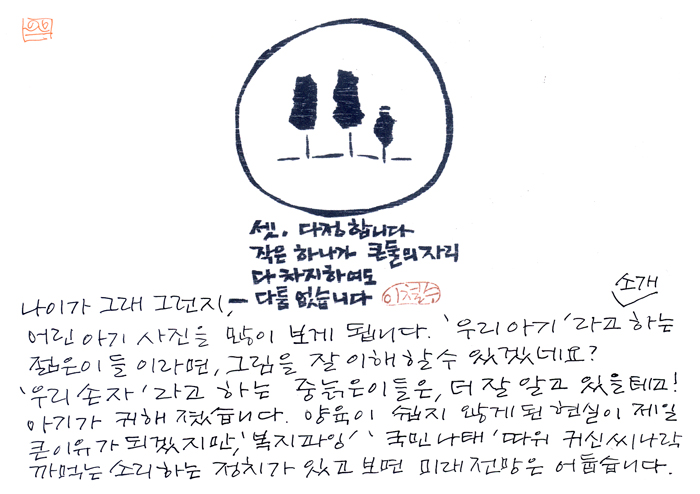 셋. 다정합니다
작은 하나가 큰둘의 자리
다 차지하여도
다툼 없습니다 이철수
나이가 그래 그런지, –
어린 아기 사진을 많이 보게 됩니다. '우리아기'라고 소개하는
젊은이들이라면, 그림을 잘 이해할 수 있겠네요?
'우리 손자'라고 하는 중늙은이들은, 더 잘 알고 있을테고!
아기가 귀해졌습니다. 양육이 쉽지 않게 된 현실이 제일
큰이유가 되겠지만, '복지과잉' '국민나태' 따위 귀신씨나락
까먹는 소리하는 정치가 있고 보면 미래전망은 어둡습니다.